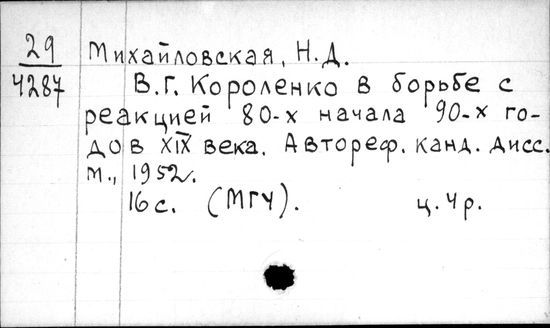 29
4287
Михайловская, Н.Д.
В.Г. Короленко в борьбе с
реакцией 80-х начала 90-х го-
дов XIX века. Автореф. канд. дисс.
М., 1952.
16с. (МГУ). ц. 4р.